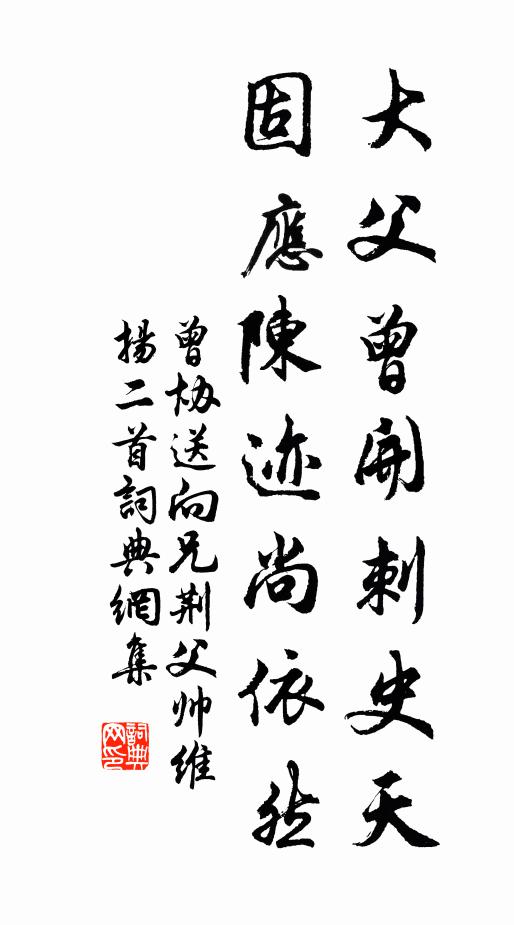 大父曾開刺史天
固應陳迹尚依然
曾协送向兄荆父帅维
揚二首詞典網集
詞典网印